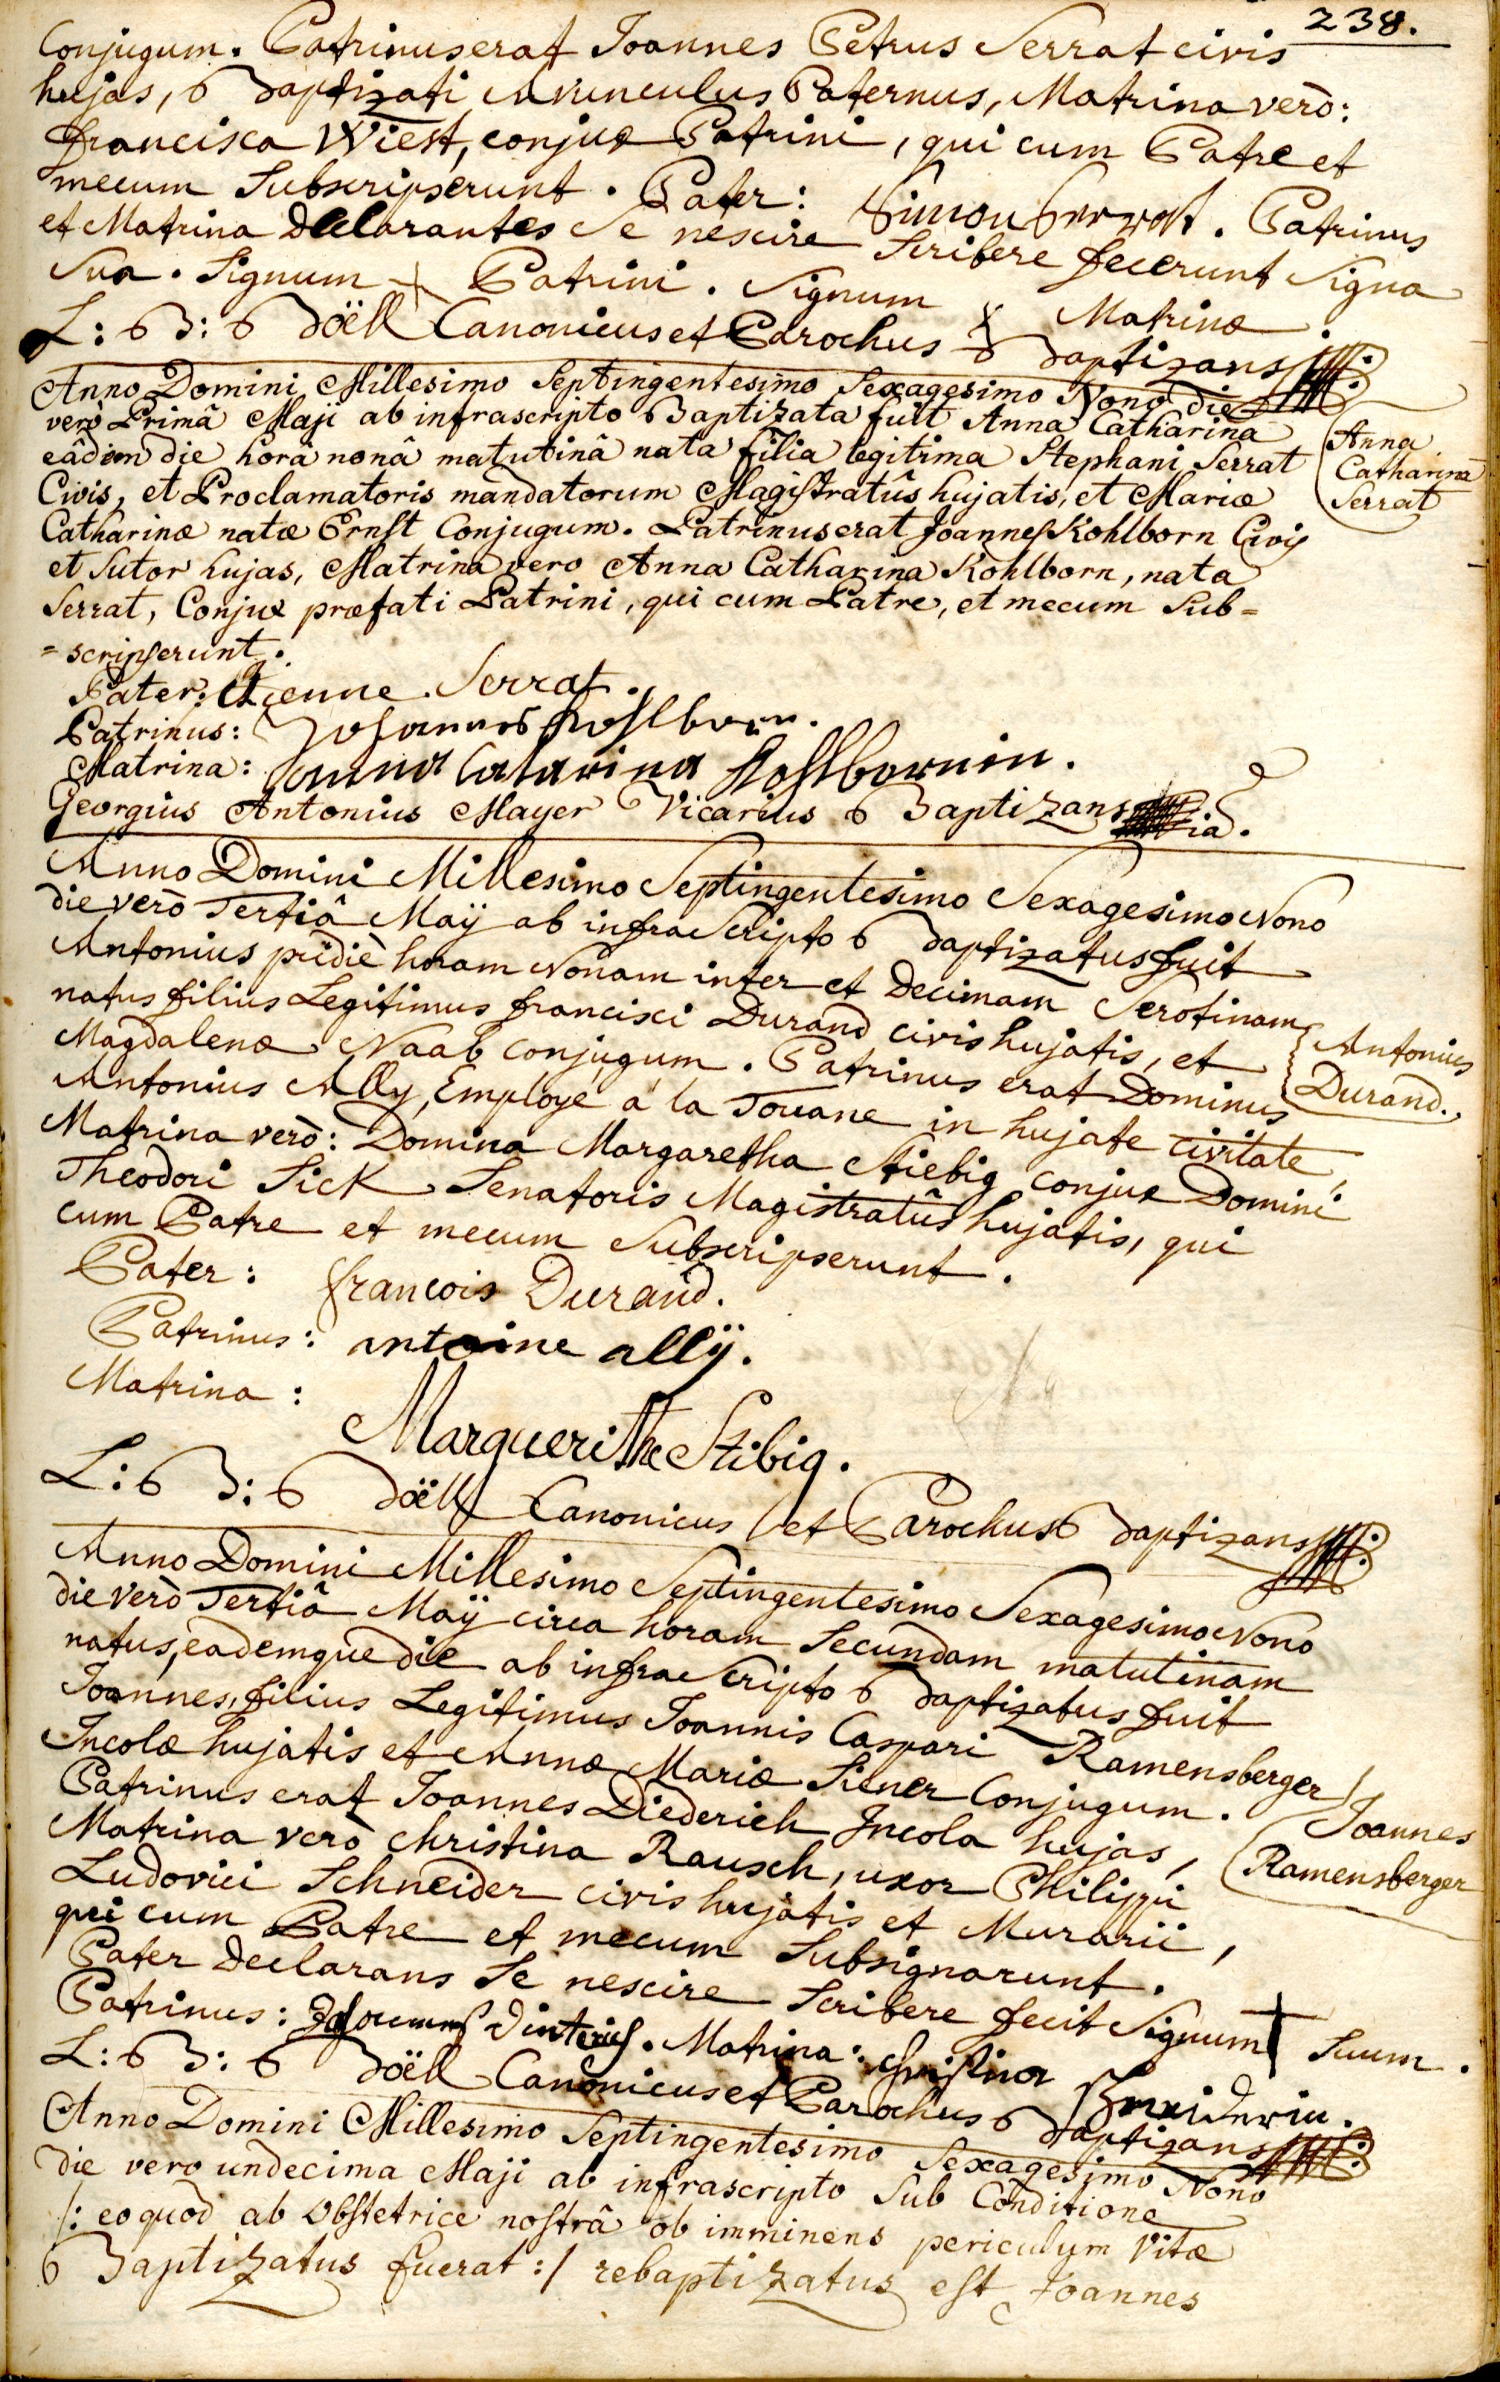 238.
Conjugum. Patrinus erat Joannes Petrus Serrat civis
hujas, Baptizati Avunculus Paternus, Matrina verò:
francisca Wiest, conjux Patrini, qui cum Patre et
mecum Subscripserunt. Pater: Simon Serrat. Patrinus
et Matrina declarantes Se nescire Scribere fecerunt Signa
Sua. Signum + Patrini. Signum x Matrinæ.
L: B: Boëll Canonicus et Parochus Baptizans
Anno Domini Millesimo Septingentesimo Sexagesimo Nono die
verò Primâ Maji ab infrascripto Baptizata fuit Anna Catharina
eâdem die horâ nonâ matutinâ nata filia legitima Stephani Serrat
Civis, et Proclamatoris mandatorum Magistratûs hujatis, et Mariæ
Catharinæ natæ Ernst Conjugum. Patrinus erat Joannes Kohlborn Civis
et Sutor hujas, Matrina vero Anna Catharina Kohlborn, nata
Serrat, Conjux præfati Patrini, qui cum Patre, et mecum Sub=
=scripserunt.
Anna
Catharina
Serrat
Pater: Etienne Serrat.
Patrinus: Johannes Kohlborn.
Matrina: anna Catarina Kohlbornin.
Georgius Antonius Mayer Vicarius Baptizans
Anno Domini Millesimo Septingentesimo Sexagesimo Nono
die verò Tertiâ Maÿ ab infra Scripto Baptizatus fuit
Antonius pridiè horam Nonam inter et Decimam Serotinam
natus filius Legitimus francisci Durand civis hujatis, et
Magdalenæ Naab conjugum. Patrinus erat Dominus
Antonius Ally, Employé á la Touane in hujate civitate,
Matrina verò: Domina Margaretha Stiebig conjux Domini
Theodori Sick Senatoris Magistratûs hujatis, qui
cum Patre et mecum Subscripserunt.
Antonius
Durand.
Pater: francois Durand.
Patrinus: antoine allÿ.
Matrina: Marguerithe Stibig.
L: B: Boëll Canonicus et Parochus Baptizans
Anno Domini Millesimo Septingentesimo Sexagesimo Nono
die verò Tertiâ Maÿ circa horam Secundam matutinam
natus, eademque die ab infra Scripto Baptizatus fuit
Joannes, filius Legitimus Joannis Caspari Ramensberger
Incolæ hujatis et Annæ Mariæ Siener Conjugum.
Patrinus erat Joannes Diederich Incola hujas,
Matrina verò Christina Rausch, uxor Philippi
Ludovici Schneider civis hujatis et Murarii,
qui cum Patre et mecum Subsignarunt.
Joannes
Ramensberger
Pater declarans Se nescire Scribere fecit Signum + Suum.
Patrinus: Johannes Dieterich. Matrina: Christina Schneiderin.
L: B: Boëll Canonicus et Parochus Baptizans
Anno Domini Millesimo Septingentesimo Sexagesimo Nono
die vero undecima Maji ab infrascripto Sub Conditione
/: eo quòd ab Obstetrice nostrâ ob imminens periculum Vitæ
Baptizatus fuerat :/ rebaptizatus est Joannes